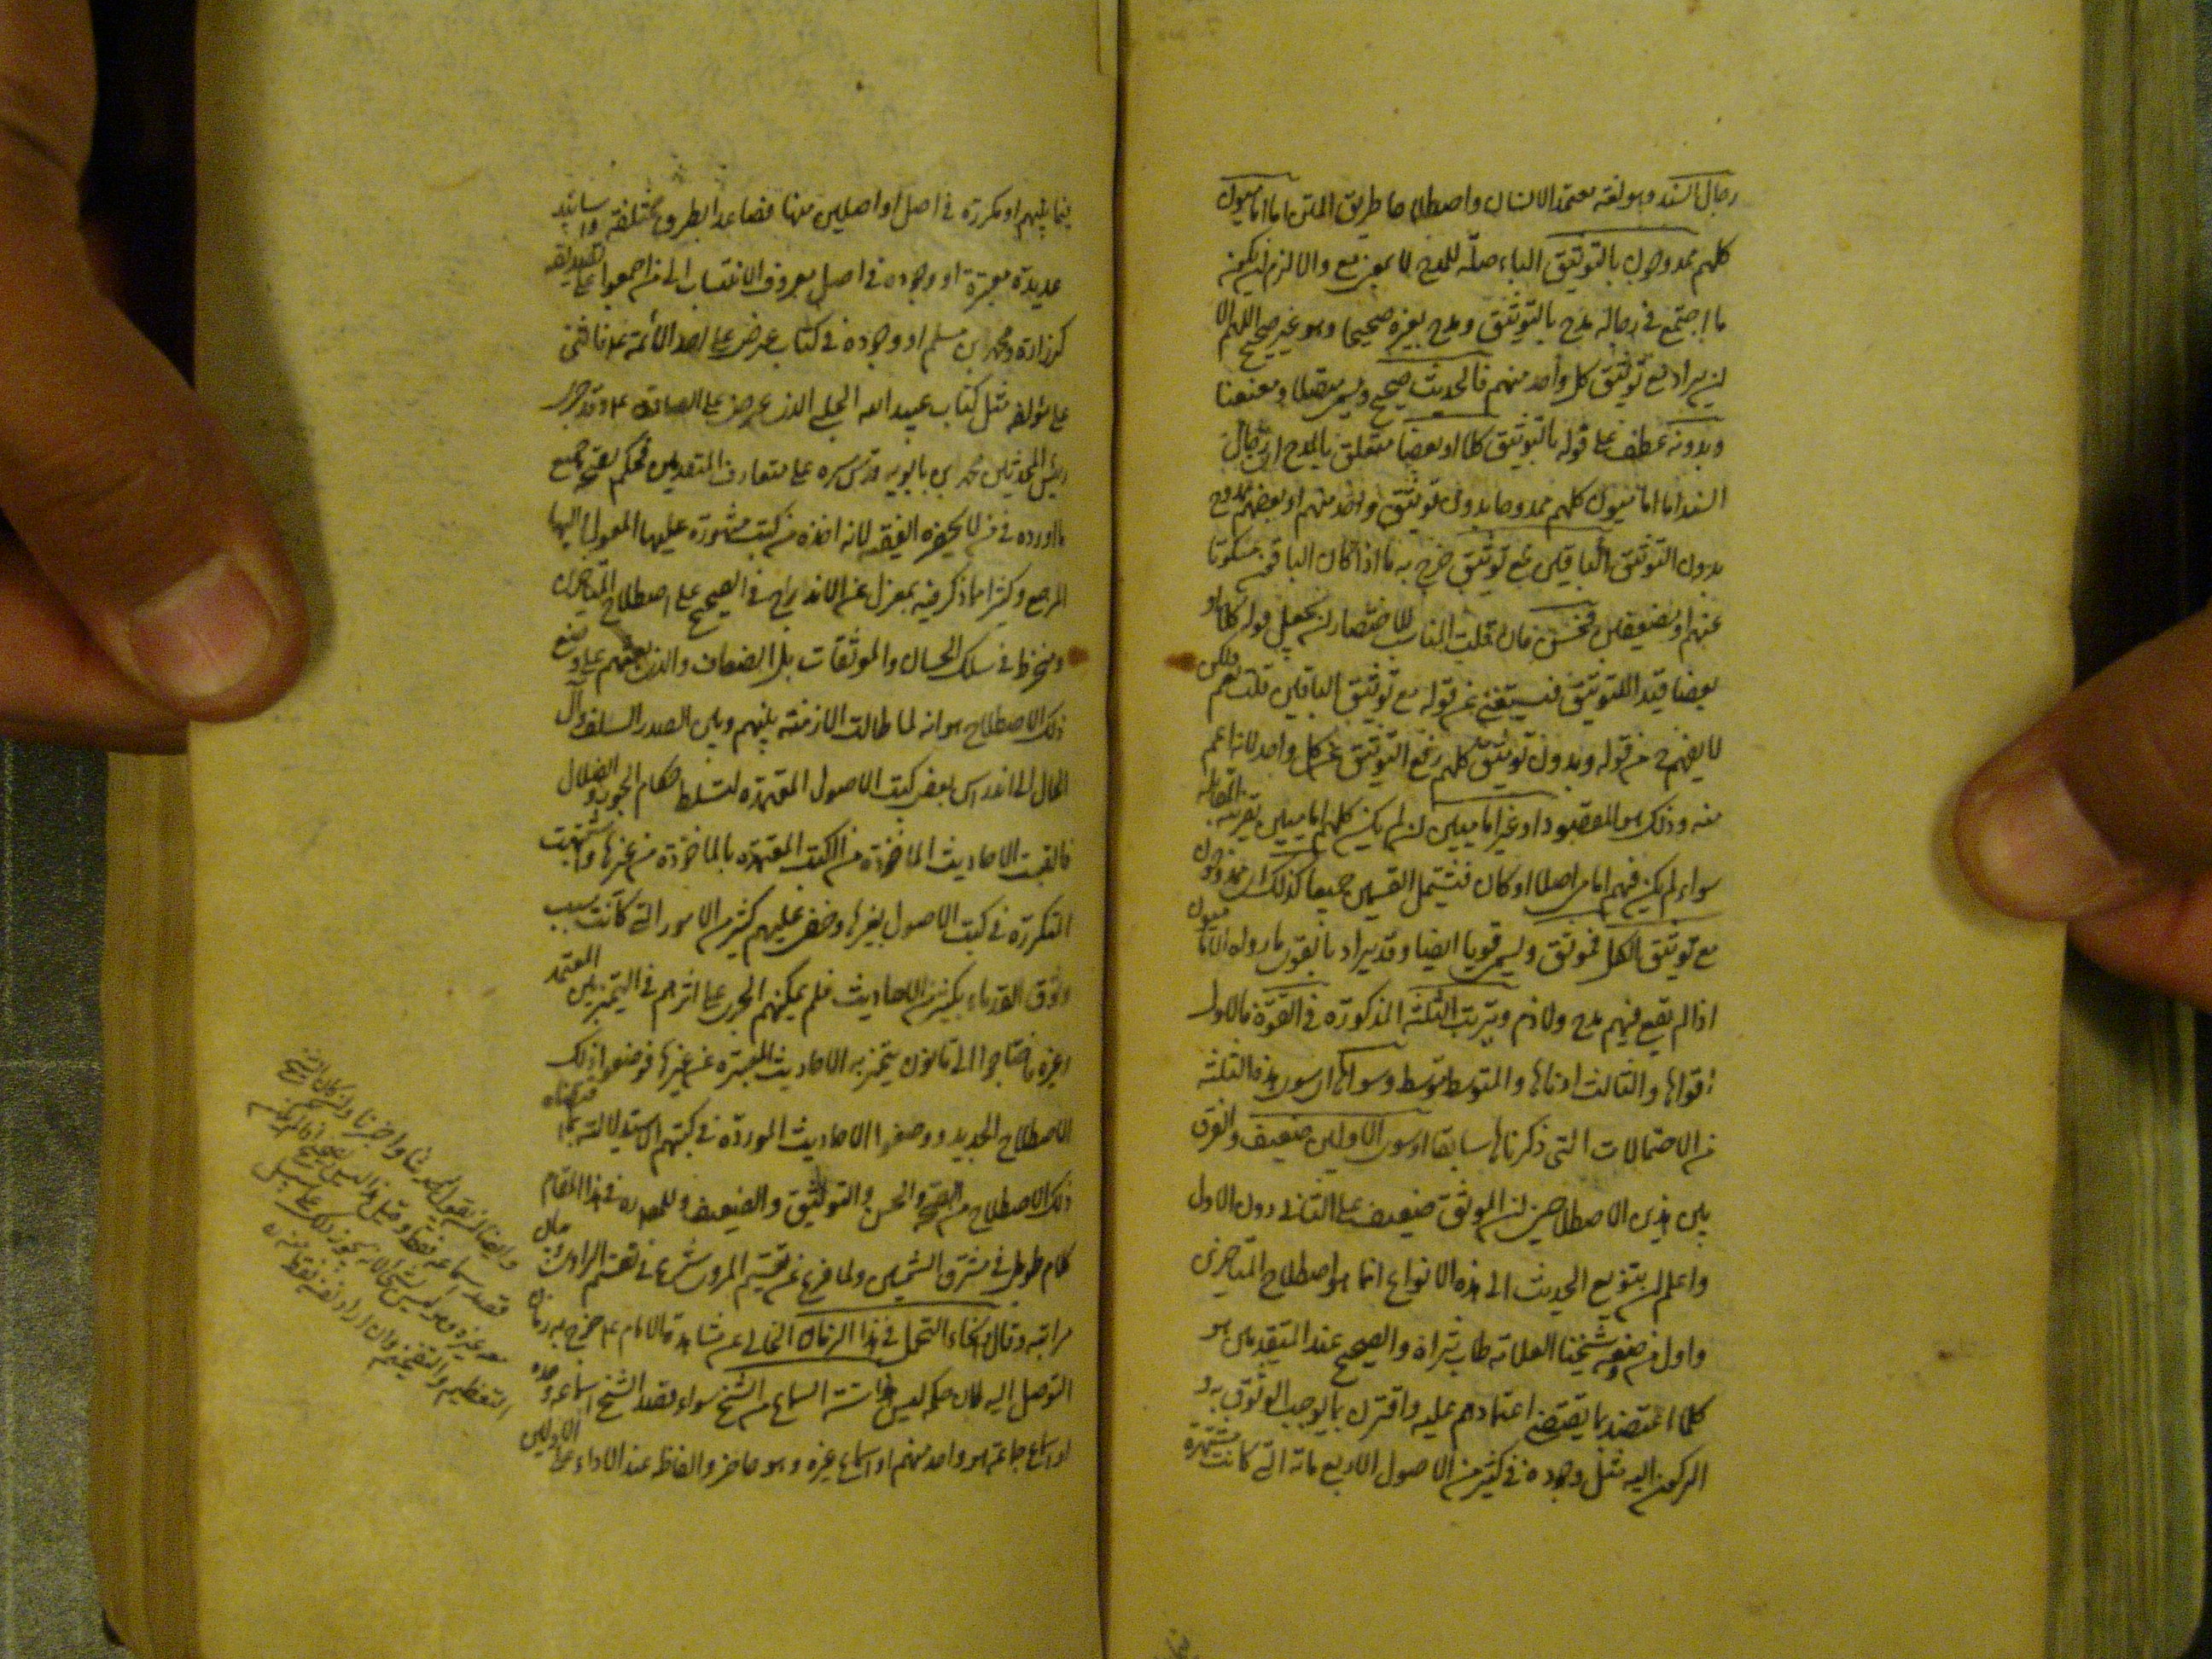 رجال السند وهو لغة معتمد الانسان واصطلاحا طريق المتن اما اماميون
كلهم ممدوحون بالتوثيق الباء صلة للمدح لا بمعنى مع والا لزم ان يكون
ما اجتمع في رجاله مدح بالتوثيق ومدح بغيره صحيحا وهو غير صحيح اللهم الا
ان يراد مع توثيق كل واحد منهم فالحديث صحيح ويسمى متصلا ومعنعنا
وبدونه عطف على قوله بالتوثيق كلا او بعضا متعلق بالمدح اي رجال
السند اما اماميون كلهم ممدوحا بدون توثيق واحد منهم او بعضهم ممدوح
بدون التوثيق الباقين مع توثيق خرج به ما اذا كان الباقي مسكوتا
عنهم او ضعيفين فحسن فان قلت المناسب للاختصار ان يجعل قوله كلا او
بعضا قيدا للتوثيق فيستغني عن قوله مع توثيق الباقين قلت نعم ولكن
لا يفهم ح من قوله وبدون توثيق كلهم رفع التوثيق عن كل واحد لانه اعم
منه وذلك هو المقصود او غير اماميين ان لم يكن كلهم اماميين بقرينة المقابلة
سواء لم يكن فيهم امامي اصلا او كان فيشتمل القسمين جميعا كذلك اي ممدوحون
مع توثيق الكل فموثق ويسمى قويا ايضا وقد يراد بالقوي ما رواه الاماميون
اذا لم يقع فيهم مدح ولا ذم وترتب الثلثة المذكورة في القوة فالاول
اقواها والثالث ادناها والمتوسط متوسط وسواها اي سوى هذه الثلثة
من الاحتمالات التي ذكرناها سابقا او سوى الاولين ضعيف والفرق
بين هذين الاصطلاحين ان الموثق ضعيف على الثاني دون الاول
واعلم ان تنويع الحديث الى هذه الانواع انما هو اصطلاح المتاخرين
واول من وضعه شيخنا العلامة طاب ثراه والصحيح عند المتقدمين هو
كلما اعتضد بما يقتضي اعتمادهم عليه واقترن بما يوجب الوثوق به و
الركون اليه مثل وجوده في كثير من الاصول الاربع مائة التي كانت مشتهرة
فيما بينهم او مكررة في اصل او اصلين منها فصاعدا بطرق مختلفة واسانيد
عديدة معتبرة او وجوده في اصل معروف الانتساب الى من اجمعوا على تصديقه
كزرارة ومحمد بن مسلم او وجوده في كتاب عرض على احد الائمة ع فاثنى
على مؤلفه مثل كتاب عبيد الله الحلبي الذي عرض على الصادق ع وقد جرى
رئيس المحدثين محمد بن بابويه قدس سره على متعارف المتقدمين فحكم بصحة جميع
ما اورده في من لا يحضره الفقيه لانه اخذه من كتب مشهورة عليها المعول واليها
المرجع وكثيرا ما ذكر فيه بمعزل عن الاندراج في الصحيح على اصطلاح المتاخرين
ومنخرط في سلك الحسان والموثقات بل الضعاف والذي بعثهم على وضع
ذلك الاصطلاح هو انه لما طالت الازمنة بينهم وبين الصدر السلف وآل
الحال الى اندراس بعض كتب الاصول المعتمدة لتسلط حكام الجور والضلال
فالتبست الاحاديث الماخوذة من الكتب المعتمدة بالماخوذة من غيرها واشتبهت
المتكررة في كتب الاصول بغيرها وخفي عليهم كثير من الامور التي كانت سبب
وثوق القدماء بكثير من الاحاديث فلم يمكنهم الجري على اثرهم في التمييز بين المعتمد
وغيره فاحتاجوا الى قانون يتميز به الاحاديث المعتبرة عن غيرها فوضعوا ذلك
الاصطلاح الجديد ووصفوا الاحاديث الموردة في كتبهم الاستدلالية بما اقتضاه
ذلك الاصطلاح من الصحة والحسن والتوثيق والضعيف في هذا المقام
كلام طويل في مشرق الشمسين ولما فرغ عن تقسيم المروي شرع في تقسيم الراوي
مراتبه وقال وانحاء التحمل في هذا الزمان الخالي عن مشاهدة الامام ع خرج به زمان
التوصل اليه فان حكمه ليس هذا ستة السماع من الشيخ سواء قصد الشيخ اسماعه وحده
او اسماع جماعة هو واحد منهم او اسماع غيره وهو حاضر والفاظه عند الاداء على الاولين